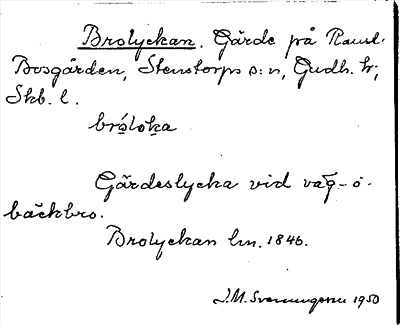 Brolyckan. Gärde på Raml-
Bosgården, Stenstorps s:n, Gudh. h;
Skb. l.
bróloka
Gärdeslycka vid väg- o.
bäckbro.
Brolyckan lm. 1846.
J.M. Svenungsson 1950